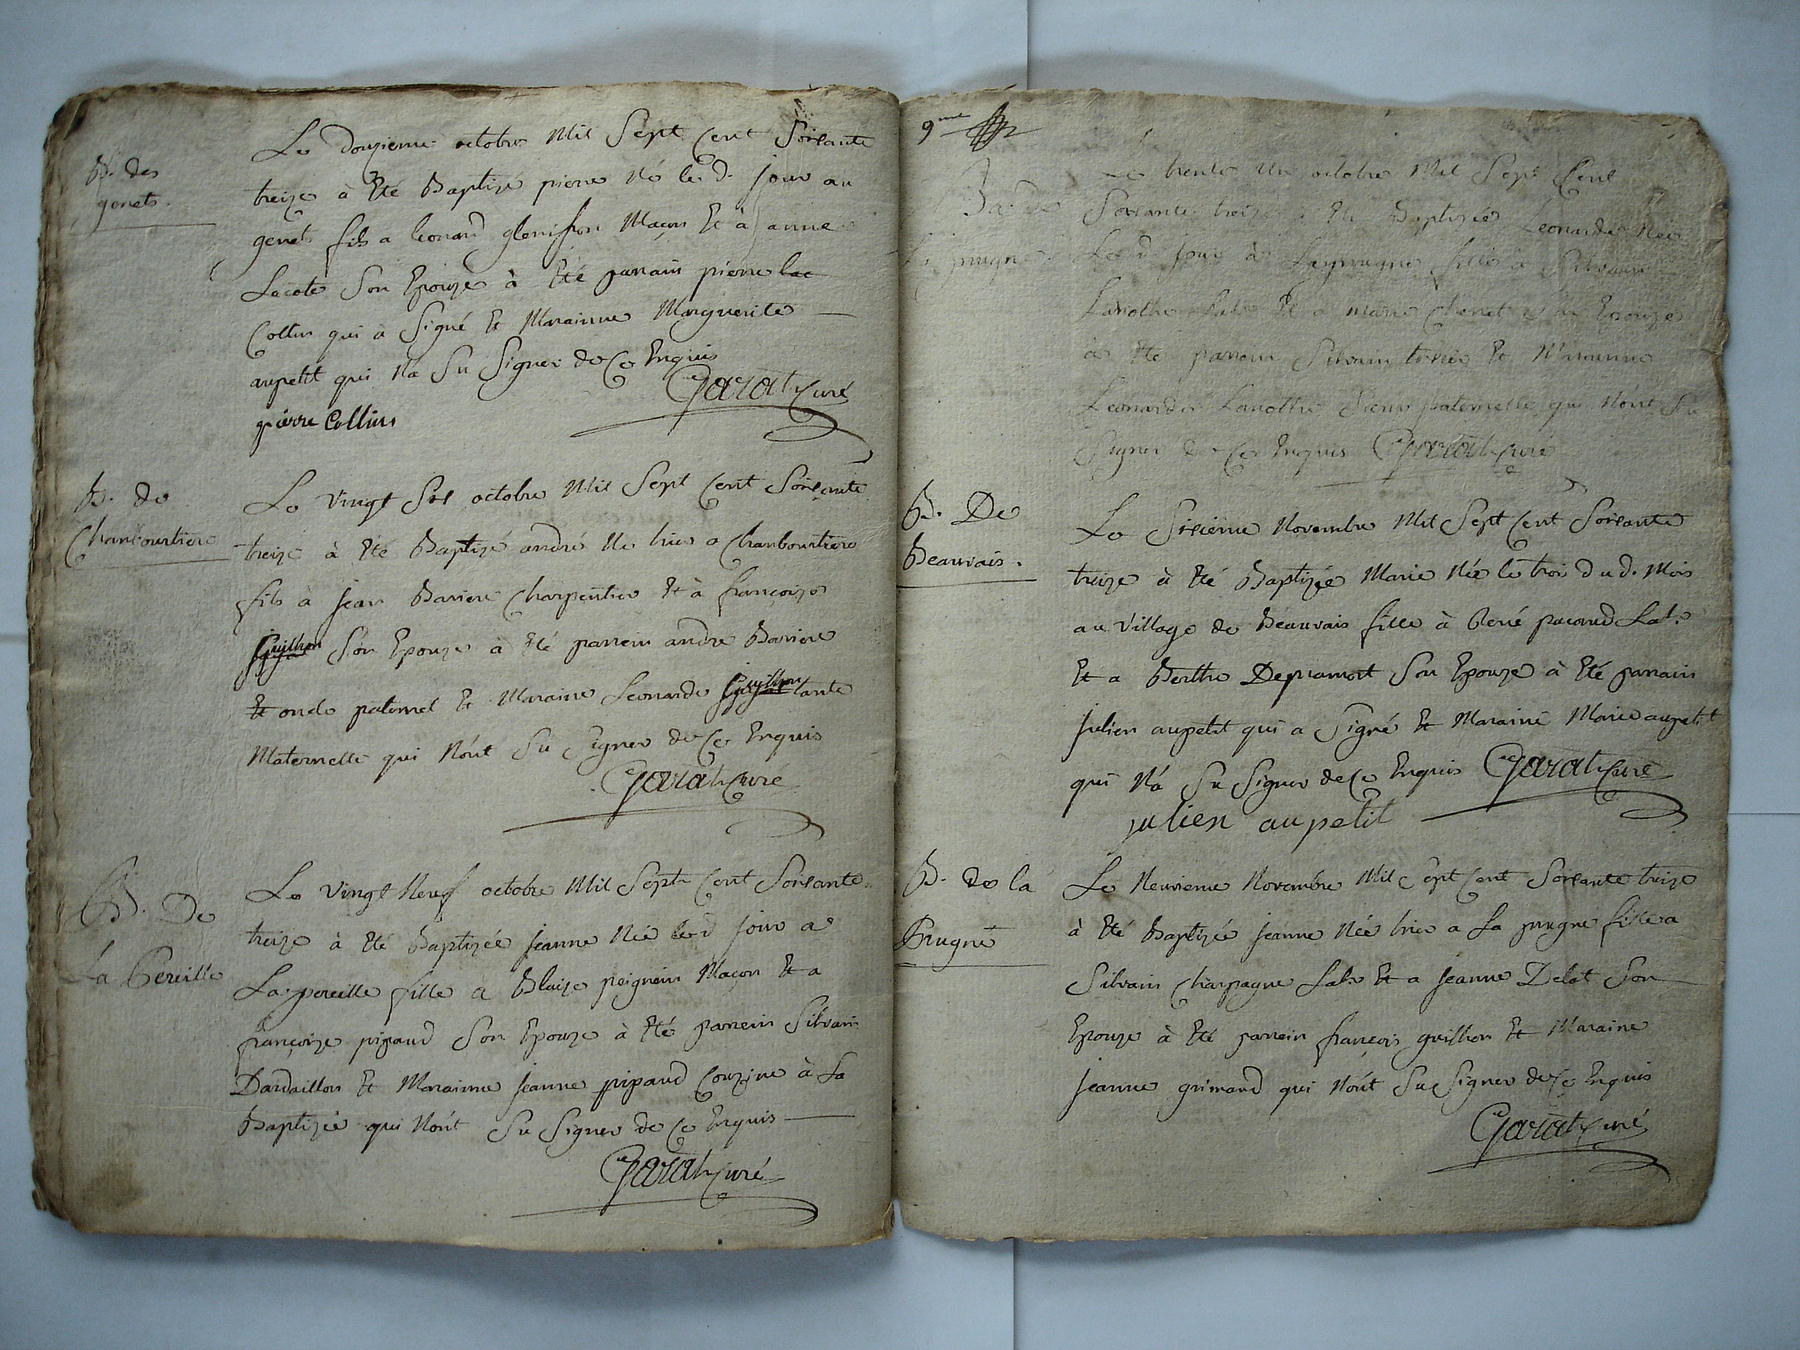 B. des
genets.
Le douzieme octobre Mil Sept Cent Soixante
treize à Eté Baptizé pierre Né le d. jour au
genets fils a leonard glenisson Maçon Et à anne
Lacote Son Epouze à Eté parrain pierre lac
Collin qui à Signé Et Marainne Marguerite
aupetit qui Na Su Signer de Ce Enquis
Garat Curé
pierre Collin
B. de
Chanbourtiere
Le Vingt Six octobre Mil Sept Cent Soixante
treize à Eté Baptizé andré Né hier a Chanbourtiere
fils à jean Bariere Charpentier Et à françoize
guilhon Son Epouze à Eté parrein andre Bariere
Et oncle paternel Et Maraine Leonarde guilhon tante
Maternelle qui Nont Su Signer de Ce Enquis
Garat Curé
B. De
La Pereille
Le Vingt Neuf octobre Mil Sept Cent Soixante
treize à Eté Baptizée jeanne Née le d jour a
La pereille fille a Blaize peignein Maçon Et a
françoize pipaud Son Epouze à Eté parrein Silvain
Dardaillon Et Marainne jeanne pipaud Couzine à La
Baptizée qui Nont Su Signer de Ce Enquis
Garat Curé
9me
Ba de
prugne
Le trente Un octobre Mil Sept Cent
Soixante treize à Eté Baptizée Leonarde Née
Le d jour à Laprugne fille a Silvain
Lamothe Lab. Et a marie Chenet Son Epouze
à Eté parrein Silvain Et Marainne
Leonarde Lamothe paternelle qui Nont Su
Signer de Ce Enquis Garat Curé
B. De
Beauvais.
Le Sixieme Novembre Mil Sept Cent Soixante
treize à Eté Baptizée Marie Née le trois du d. Mois
au Village de Beauvais fille à René pacaud Lab.
Et a Berthe Depramort Son Epouze à Eté parrain
julien aupetit qui a Signé Et Maraine Marie aupetit
qui Na Su Signer de Ce Enquis Garat Curé
julien aupetit
B. de la
Prugne
Le Neuvieme Novembre Mil Sept Cent Soixante treize
à Eté Baptizée jeanne Née hier a La prugne fille a
Silvain Champagne Lab. Et a jeanne Delot Son
Epouze à Eté parrein françois guilhon Et Maraine
jeanne grimaud qui Nont Su Signer de Ce Enquis
Garat Curé